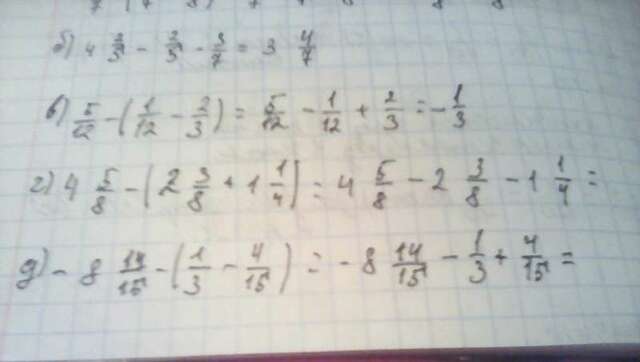 б) 4 3/5 - 3/5 - 3/7 = 3 4/7
в) 5/12 - (1/12 - 2/3) = 5/12 - 1/12 + 2/3 = - 1/3
г) 4 5/8 - (2 3/8 + 1 1/4) = 4 5/8 - 2 3/8 - 1 1/4 =
д) - 8 14/15 - (1/3 - 4/15) = - 8 14/15 - 1/3 + 4/15 =